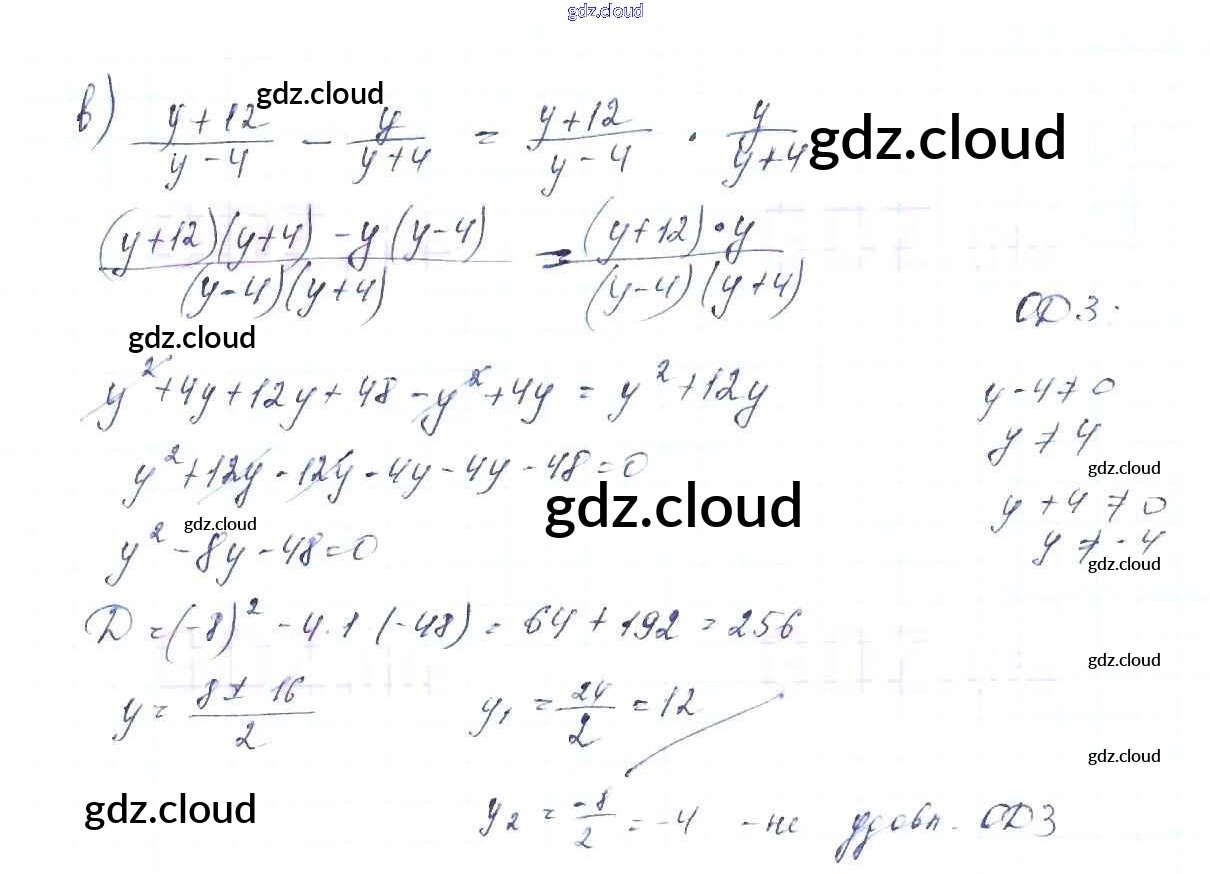 gdz.cloud
gdz.cloud
в) (y+12)/(y-4) - y/(y+4) = (y+12)/(y-4) · y/(y+4)
gdz.cloud
((y+12)(y+4) - y(y-4))/((y-4)(y+4)) = ((y+12)·y)/((y-4)(y+4))
ОДЗ:
gdz.cloud
y² + 4y + 12y + 48 - y² + 4y = y² + 12y
y - 4 ≠ 0
y ≠ 4
y² + 12y - 12y - 4y - 4y - 48 = 0
gdz.cloud
gdz.cloud
y + 4 ≠ 0
gdz.cloud
y² - 8y - 48 = 0
y ≠ -4
gdz.cloud
D = (-8)² - 4·1 (-48) = 64 + 192 = 256
gdz.cloud
y = (8 ± 16)/2
y₁ = 24/2 = 12
gdz.cloud
gdz.cloud
y₂ = -8/2 = -4 - не удовл. ОДЗ